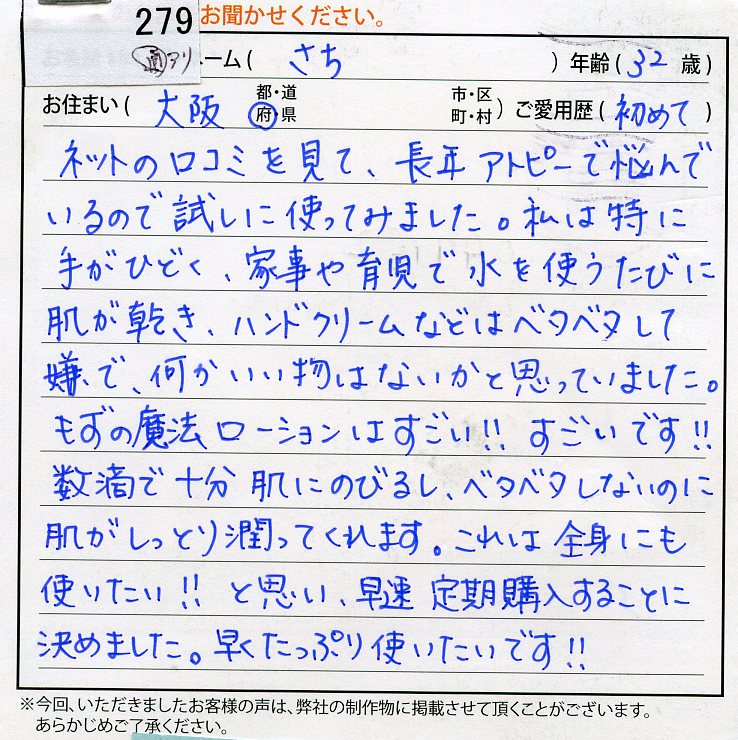 279
お聞かせください。
アリ
ーム( さち ) 年齢( 32 歳)
お住まい( 大阪 都・道 府・県 市・区 町・村 ) ご愛用歴( 初めて )
ネットの口コミを見て、長年アトピーで悩んで
いるので試しに使ってみました。私は特に
手がひどく、家事や育児で水を使うたびに
肌が乾き、ハンドクリームなどはベタベタして
嫌で、何かいい物はないかと思っていました。
もずの魔法ローションはすごい!! すごいです!!
数滴で十分肌にのびるし、ベタベタしないのに
肌がしっとり潤ってくれます。これは全身にも
使いたい!! と思い、早速定期購入することに
決めました。早くたっぷり使いたいです!!
※今回、いただきましたお客様の声は、弊社の制作物に掲載させて頂くことがございます。
あらかじめご了承ください。